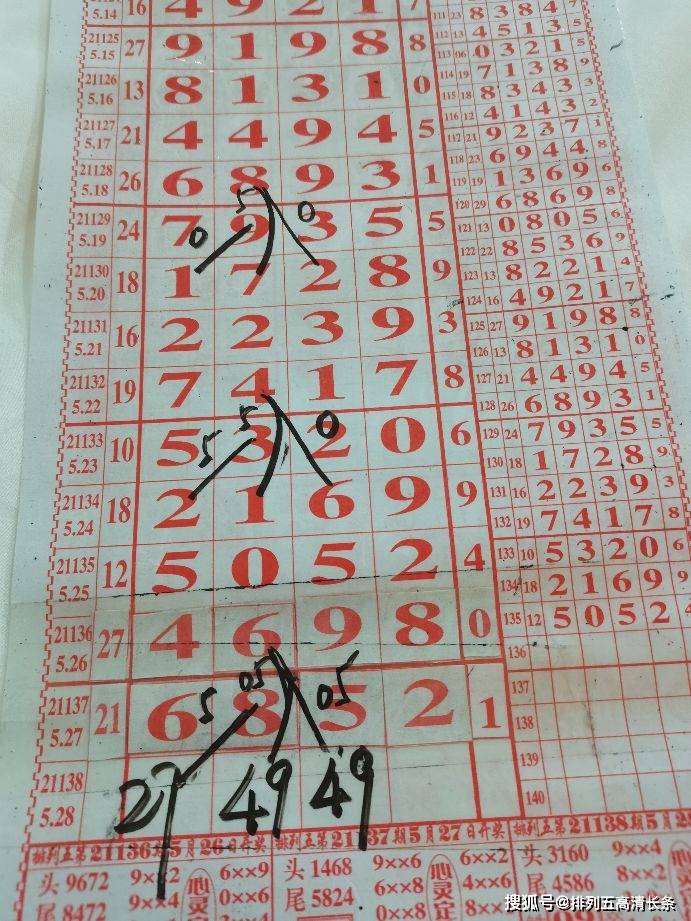 5.14 16 4 9 2 1 7
21125 5.15 27 9 1 9 8 8
21126 5.16 13 8 1 3 1 0
21127 5.17 21 4 4 9 4 5
21128 5.18 26 6 8 9 3 1
5 0
21129 5.19 24 7 9 3 5 5
0
21130 5.20 18 1 7 2 8 9
21131 5.21 16 2 2 3 9 3
21132 5.22 19 7 4 1 7 8
5 5 0
21133 5.23 10 5 3 2 0 6
21134 5.24 18 2 1 6 9 9
21135 5.25 12 5 0 5 2 4
21136 5.26 27 4 6 9 8 0
5 05 05
21137 5.27 21 6 8 5 2 1
21138 5.28
27 49 49
111 23 8 3 8 4 7
112 13 4 5 1 3 5
113 06 0 3 2 1 5
114 19 7 1 3 8 9
115 18 8 3 4 3 3
116 12 4 1 4 3 2
117 21 9 2 3 7 1
118 23 6 9 4 4 8
119 19 1 3 6 9 6
120 29 6 8 6 9 8
121 13 0 8 0 5 6
122 22 8 5 3 6 9
123 13 8 2 2 1 4
124 16 4 9 2 1 7
125 27 9 1 9 8 8
126 13 8 1 3 1 0
127 21 4 4 9 4 5
128 26 6 8 9 3 1
129 24 7 9 3 5 5
130 18 1 7 2 8 9
131 16 2 2 3 9 3
132 19 7 4 1 7 8
133 10 5 3 2 0 6
134 18 2 1 6 9 9
135 12 5 0 5 2 4
136
137
138
139
140
排列五第21136期5月26日开奖
头 9672 9××2 6××9
尾 8472 9××4 0××6
心灵
排列五第21137期5月27日开奖
头 1468 9××6 6××2
尾 5824 6××8 4××6
心灵
排列五第21138期5月28
头 3160 9××4
尾 4586 8××2
搜狐号@排列五高清长条